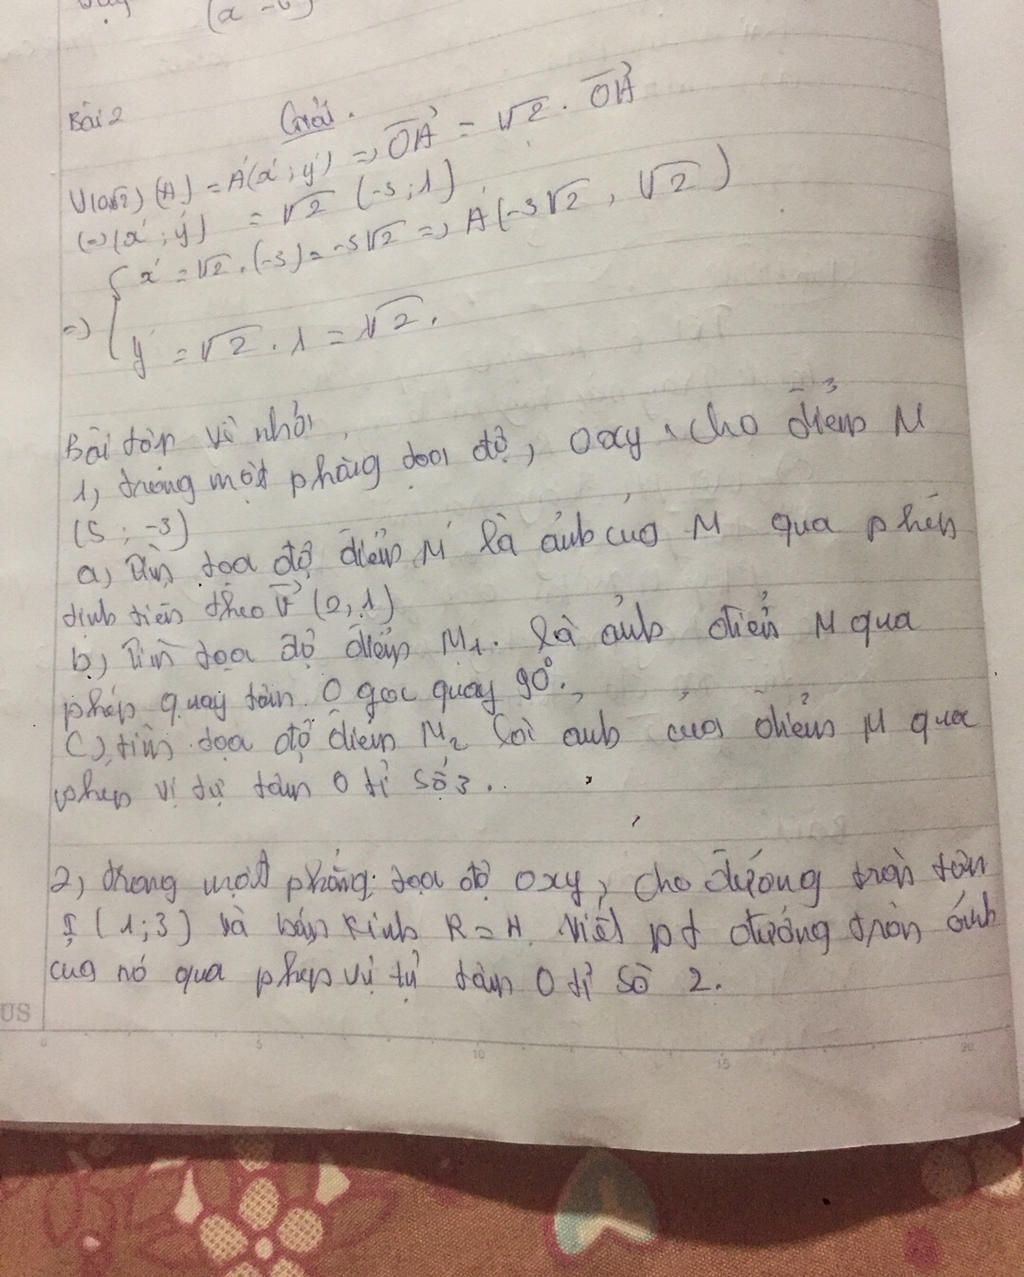 (x - 
Bài 2 Giải.
V(O,√2) (A) = A'(x'; y') => OA' = √2 . OA
(=) (x'; y') = √2 (-3; 1)
=) { x' = √2 . (-3) = -3√2 => A'(-3√2, √2)
y' = √2 . 1 = √2.
Bài tập về nhà
1, trong mặt phẳng tọa độ, oxy, cho điểm M
(5; -3)
a, Tìm tọa độ điểm M' là ảnh của M qua phép
tịnh tiến theo v (2,1)
b, Tìm tọa độ điểm M1. là ảnh điểm M qua
phép quay tâm O góc quay 90°.
C), tìm tọa độ điểm M2 là ảnh của điểm M qua
phép vị tự tâm O tỉ số 3.
2, trong mặt phẳng tọa độ oxy, cho đường tròn tâm
I (1;3) và bán kính R = 4. Viết pt đường tròn ảnh
của nó qua phép vị tự tâm O tỉ số 2.
US
0 5 10 15 20